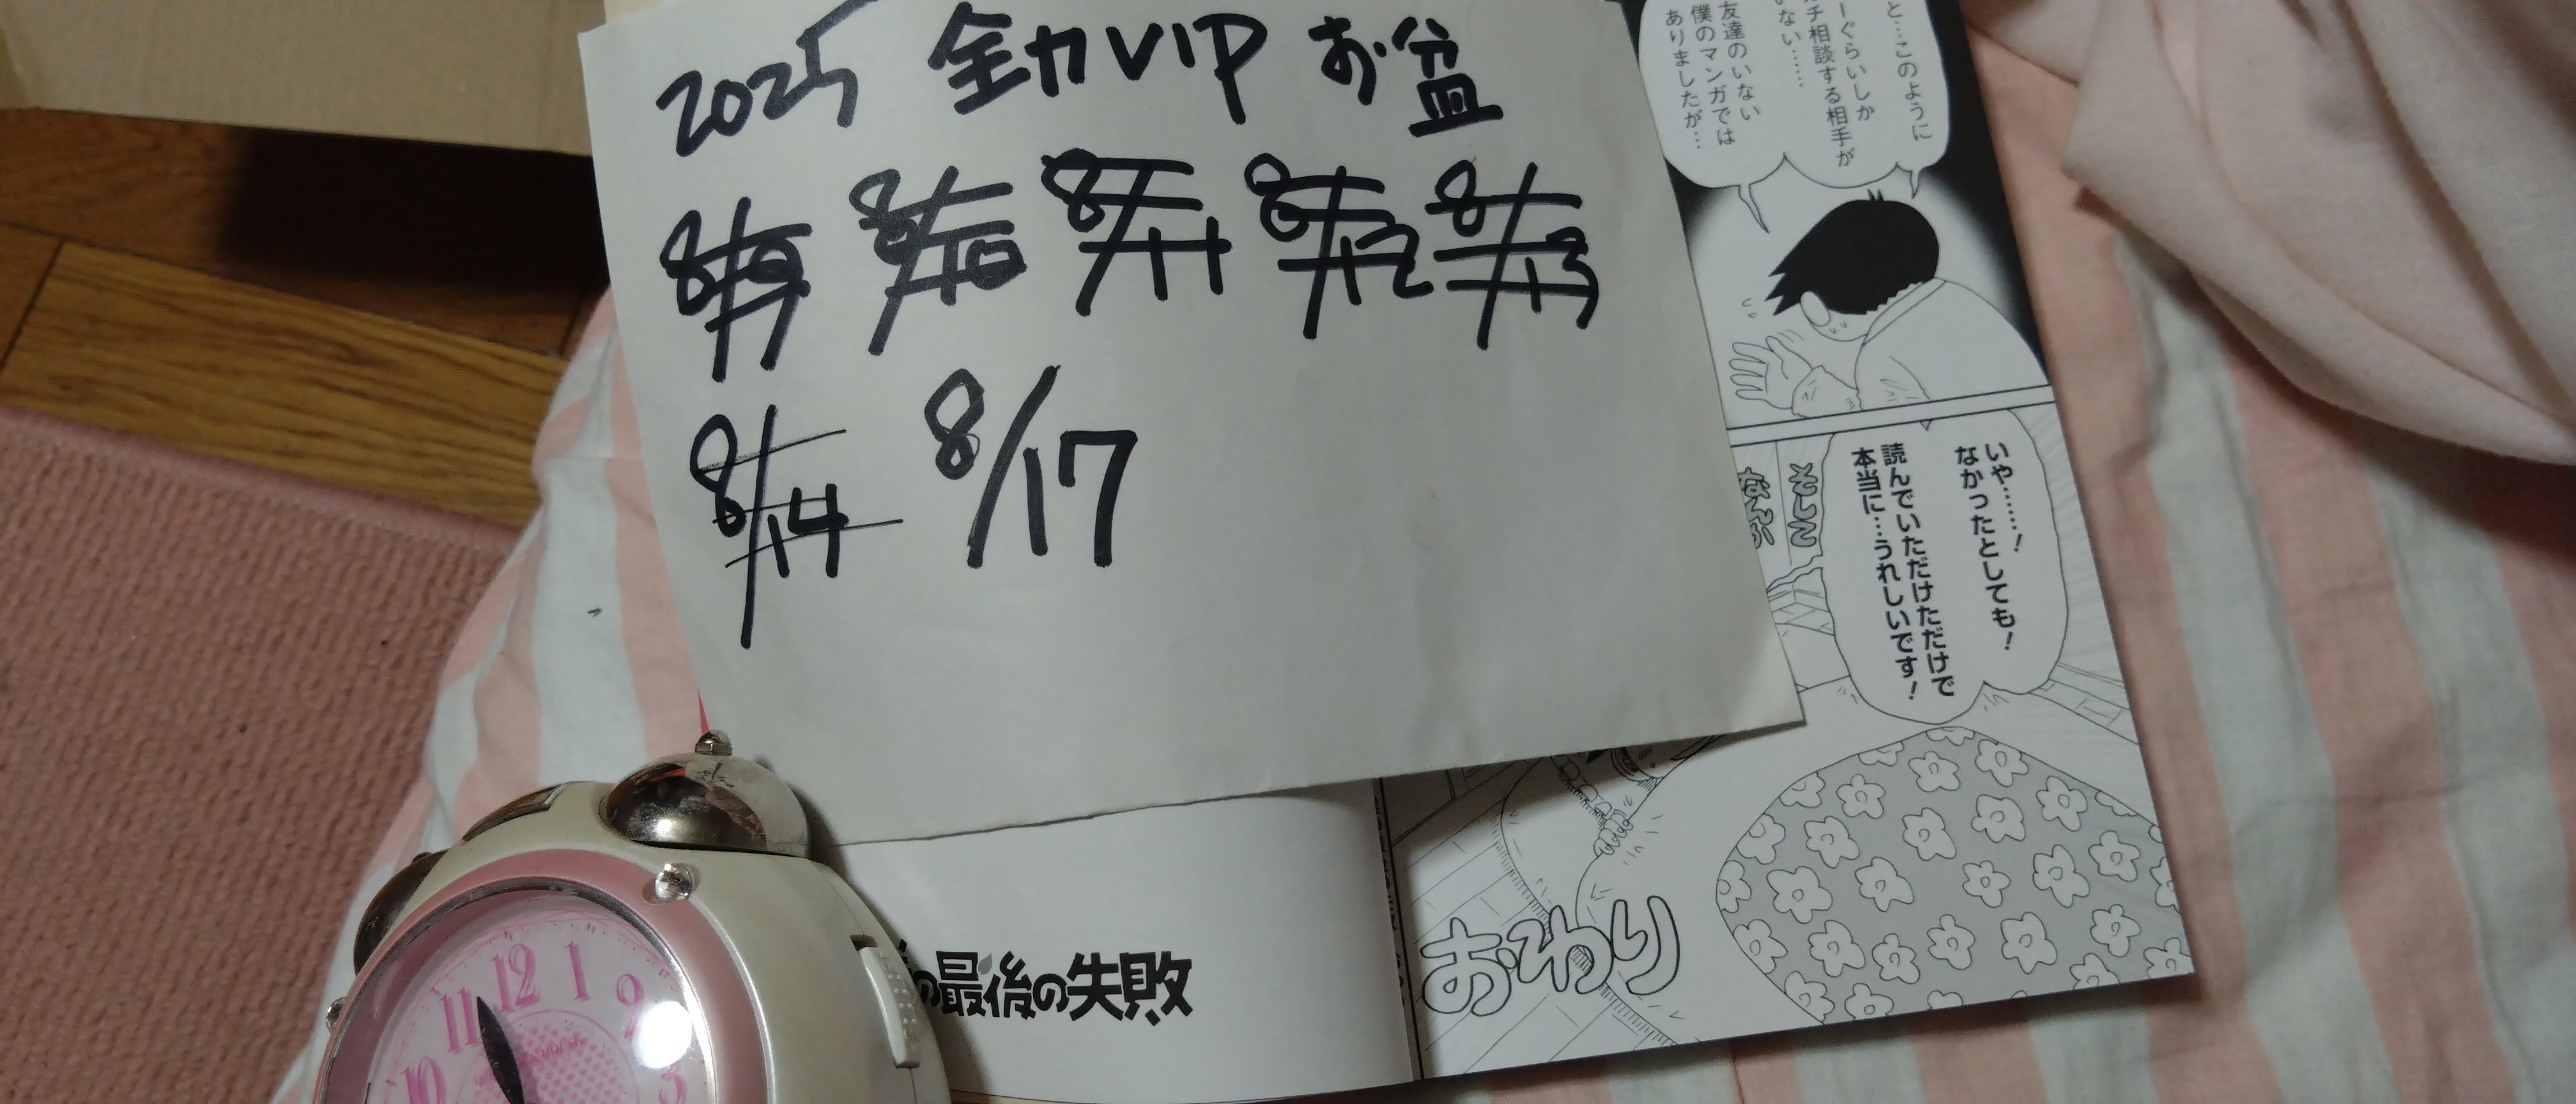 2025 全力VIP お盆
8/9 8/10 8/11 8/12 8/13
8/14 8/17
と…このように
ーぐらいしか
チ相談する相手が
いない……
友達のいない
僕のマンガでは
ありましたが…
いや……！
なかったとしても！
読んでいただけただけで
本当に…うれしいです！
そしてこ
なんか
おわり
の最後の失敗
10 11 12 1 2 3